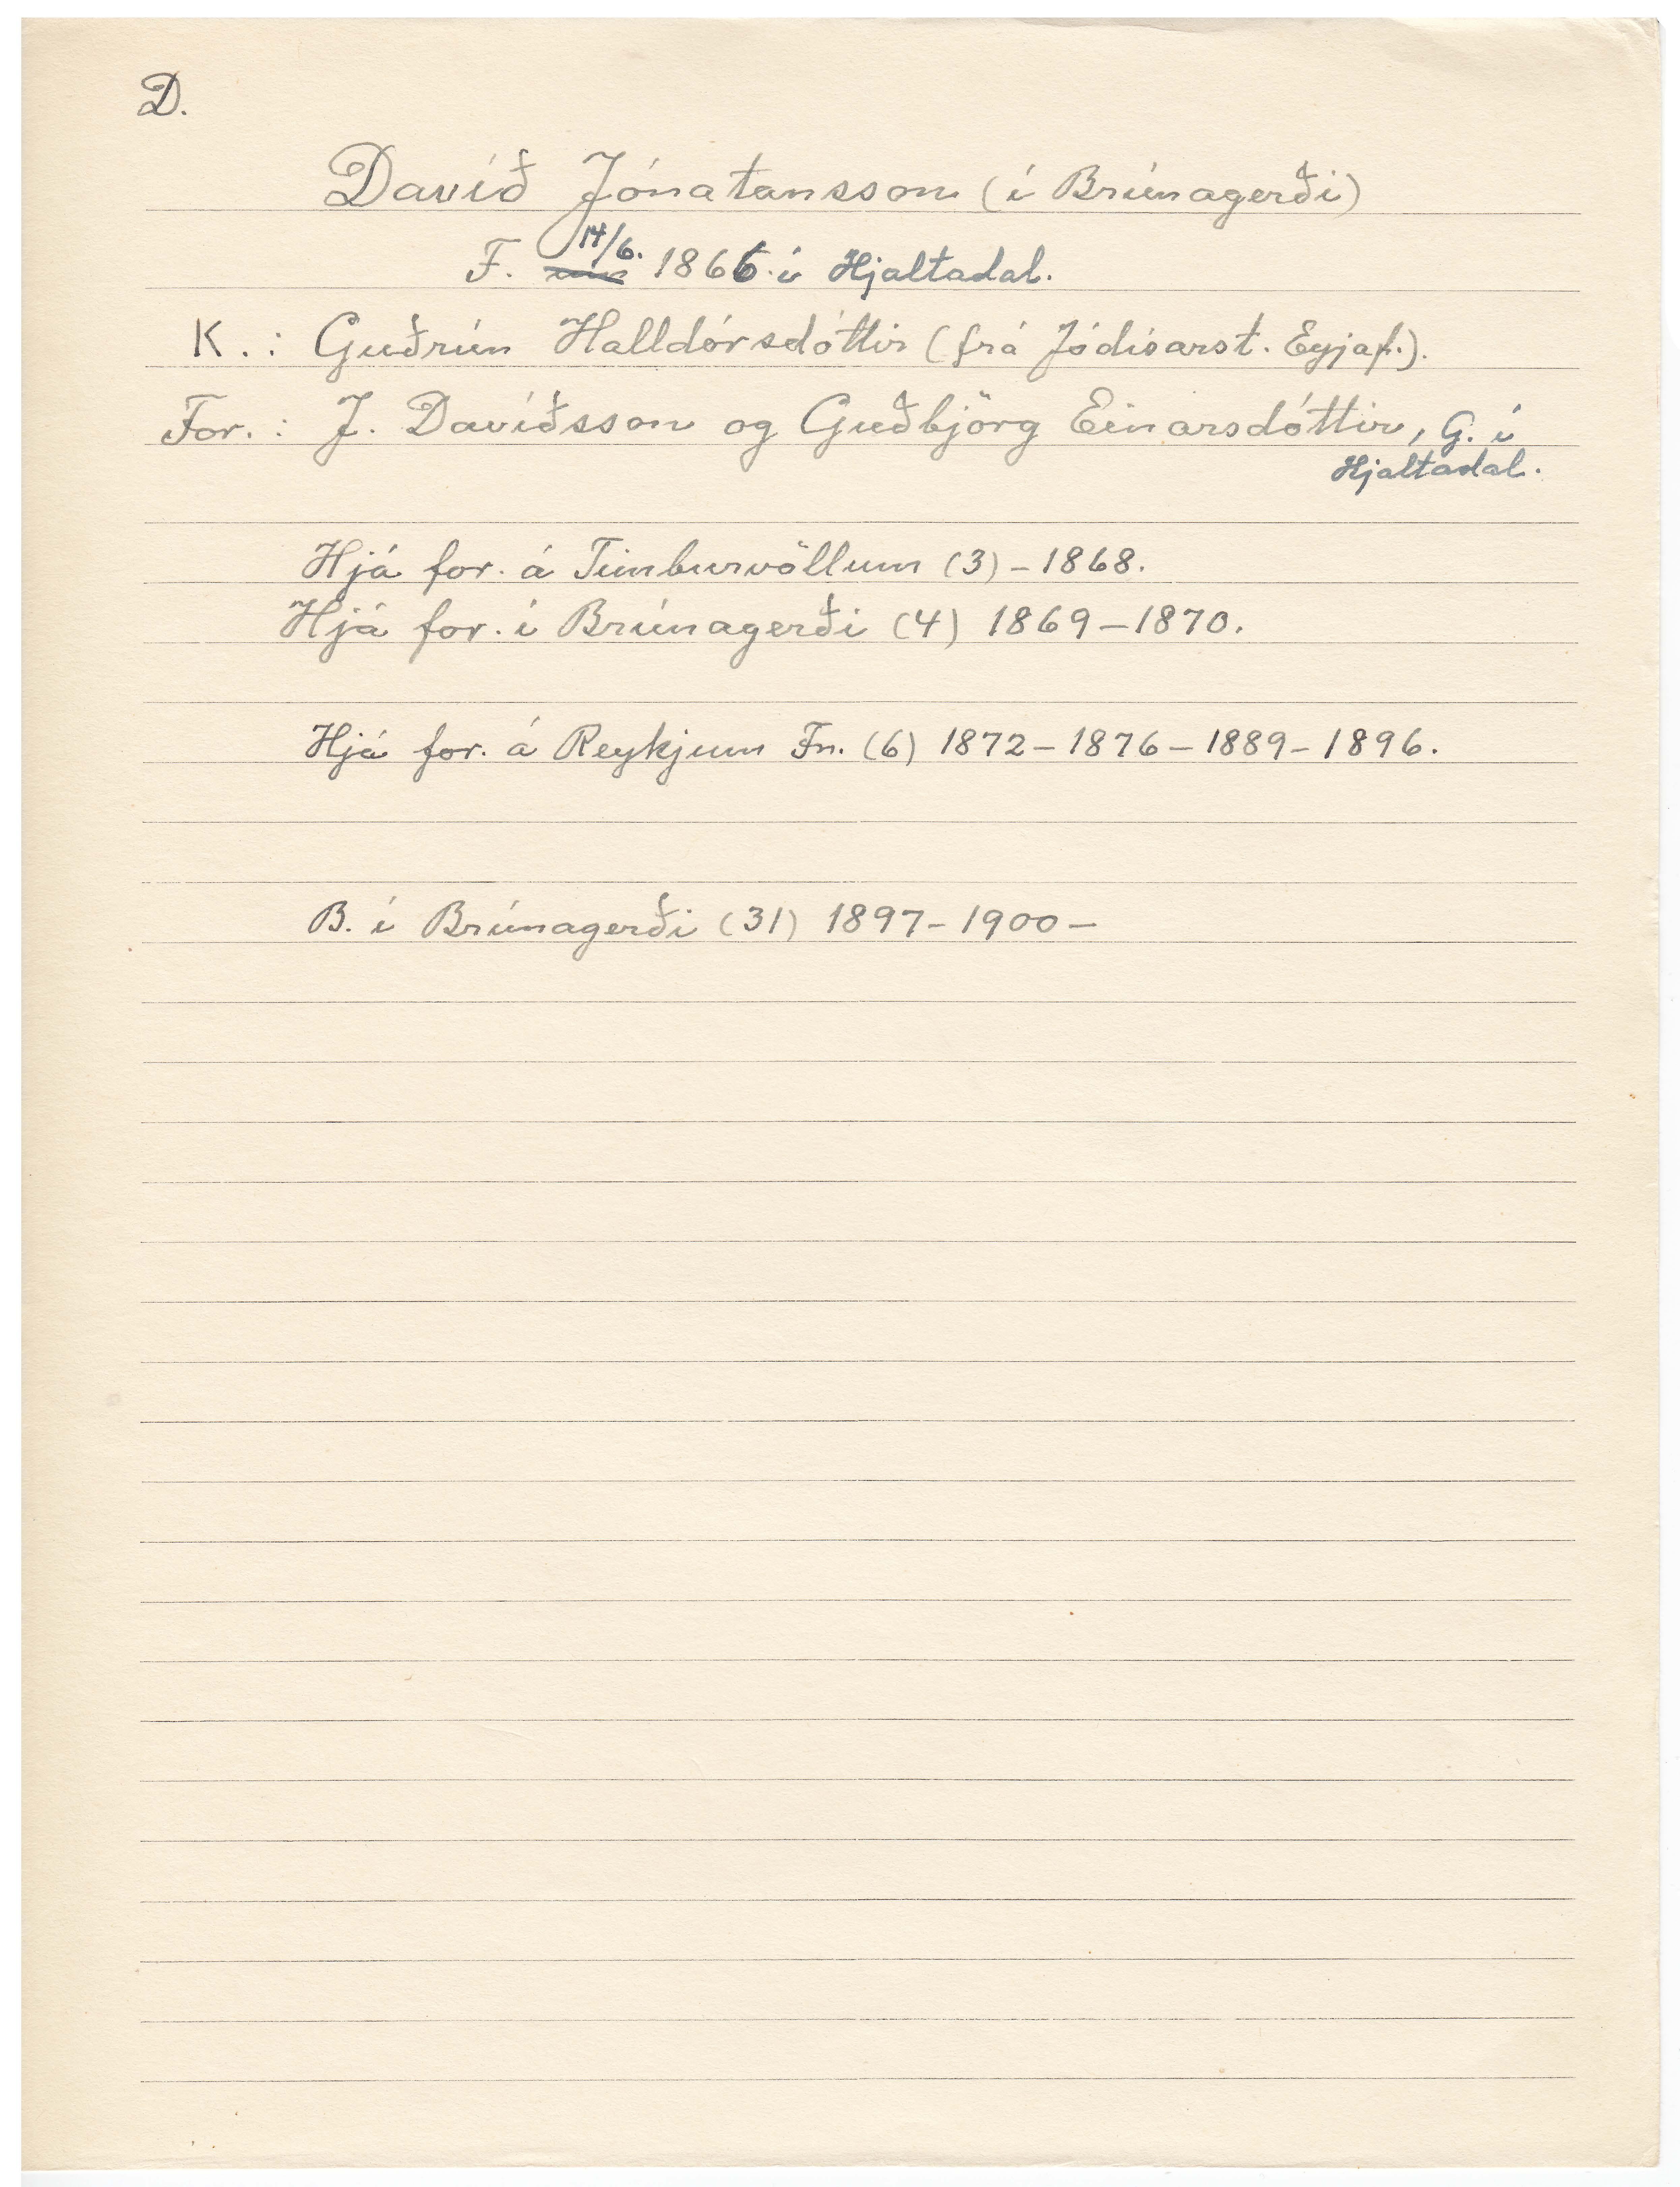 D.
Davíð Jónatansson (í Brúnagerði)
F. 14/6. 1866 í Hjaltadal.
K.: Guðrún Halldórsdóttir (frá Jódísarst. Eyjaf.).
For.: J. Davíðsson og Guðbjörg Einarsdóttir, G. í
Hjaltadal.
Hjá for. á Timburvöllum (3) – 1868.
Hjá for. í Brúnagerði (4) 1869 – 1870.
Hjá for. á Reykjum Fn. (6) 1872 – 1876 – 1889 – 1896.
B. í Brúnagerði (31) 1897 – 1900 –